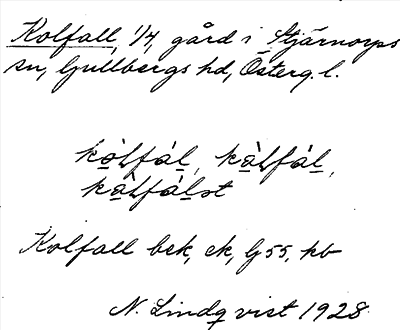 Kolfall, 1/4, gård i Stjärnorps
sn, Gullbergs hd, Österg. l.
kòlfál, kàlfál,
kàlfálst
Kolfall bek, ek, G 55, kb
N. Lindqvist 1928